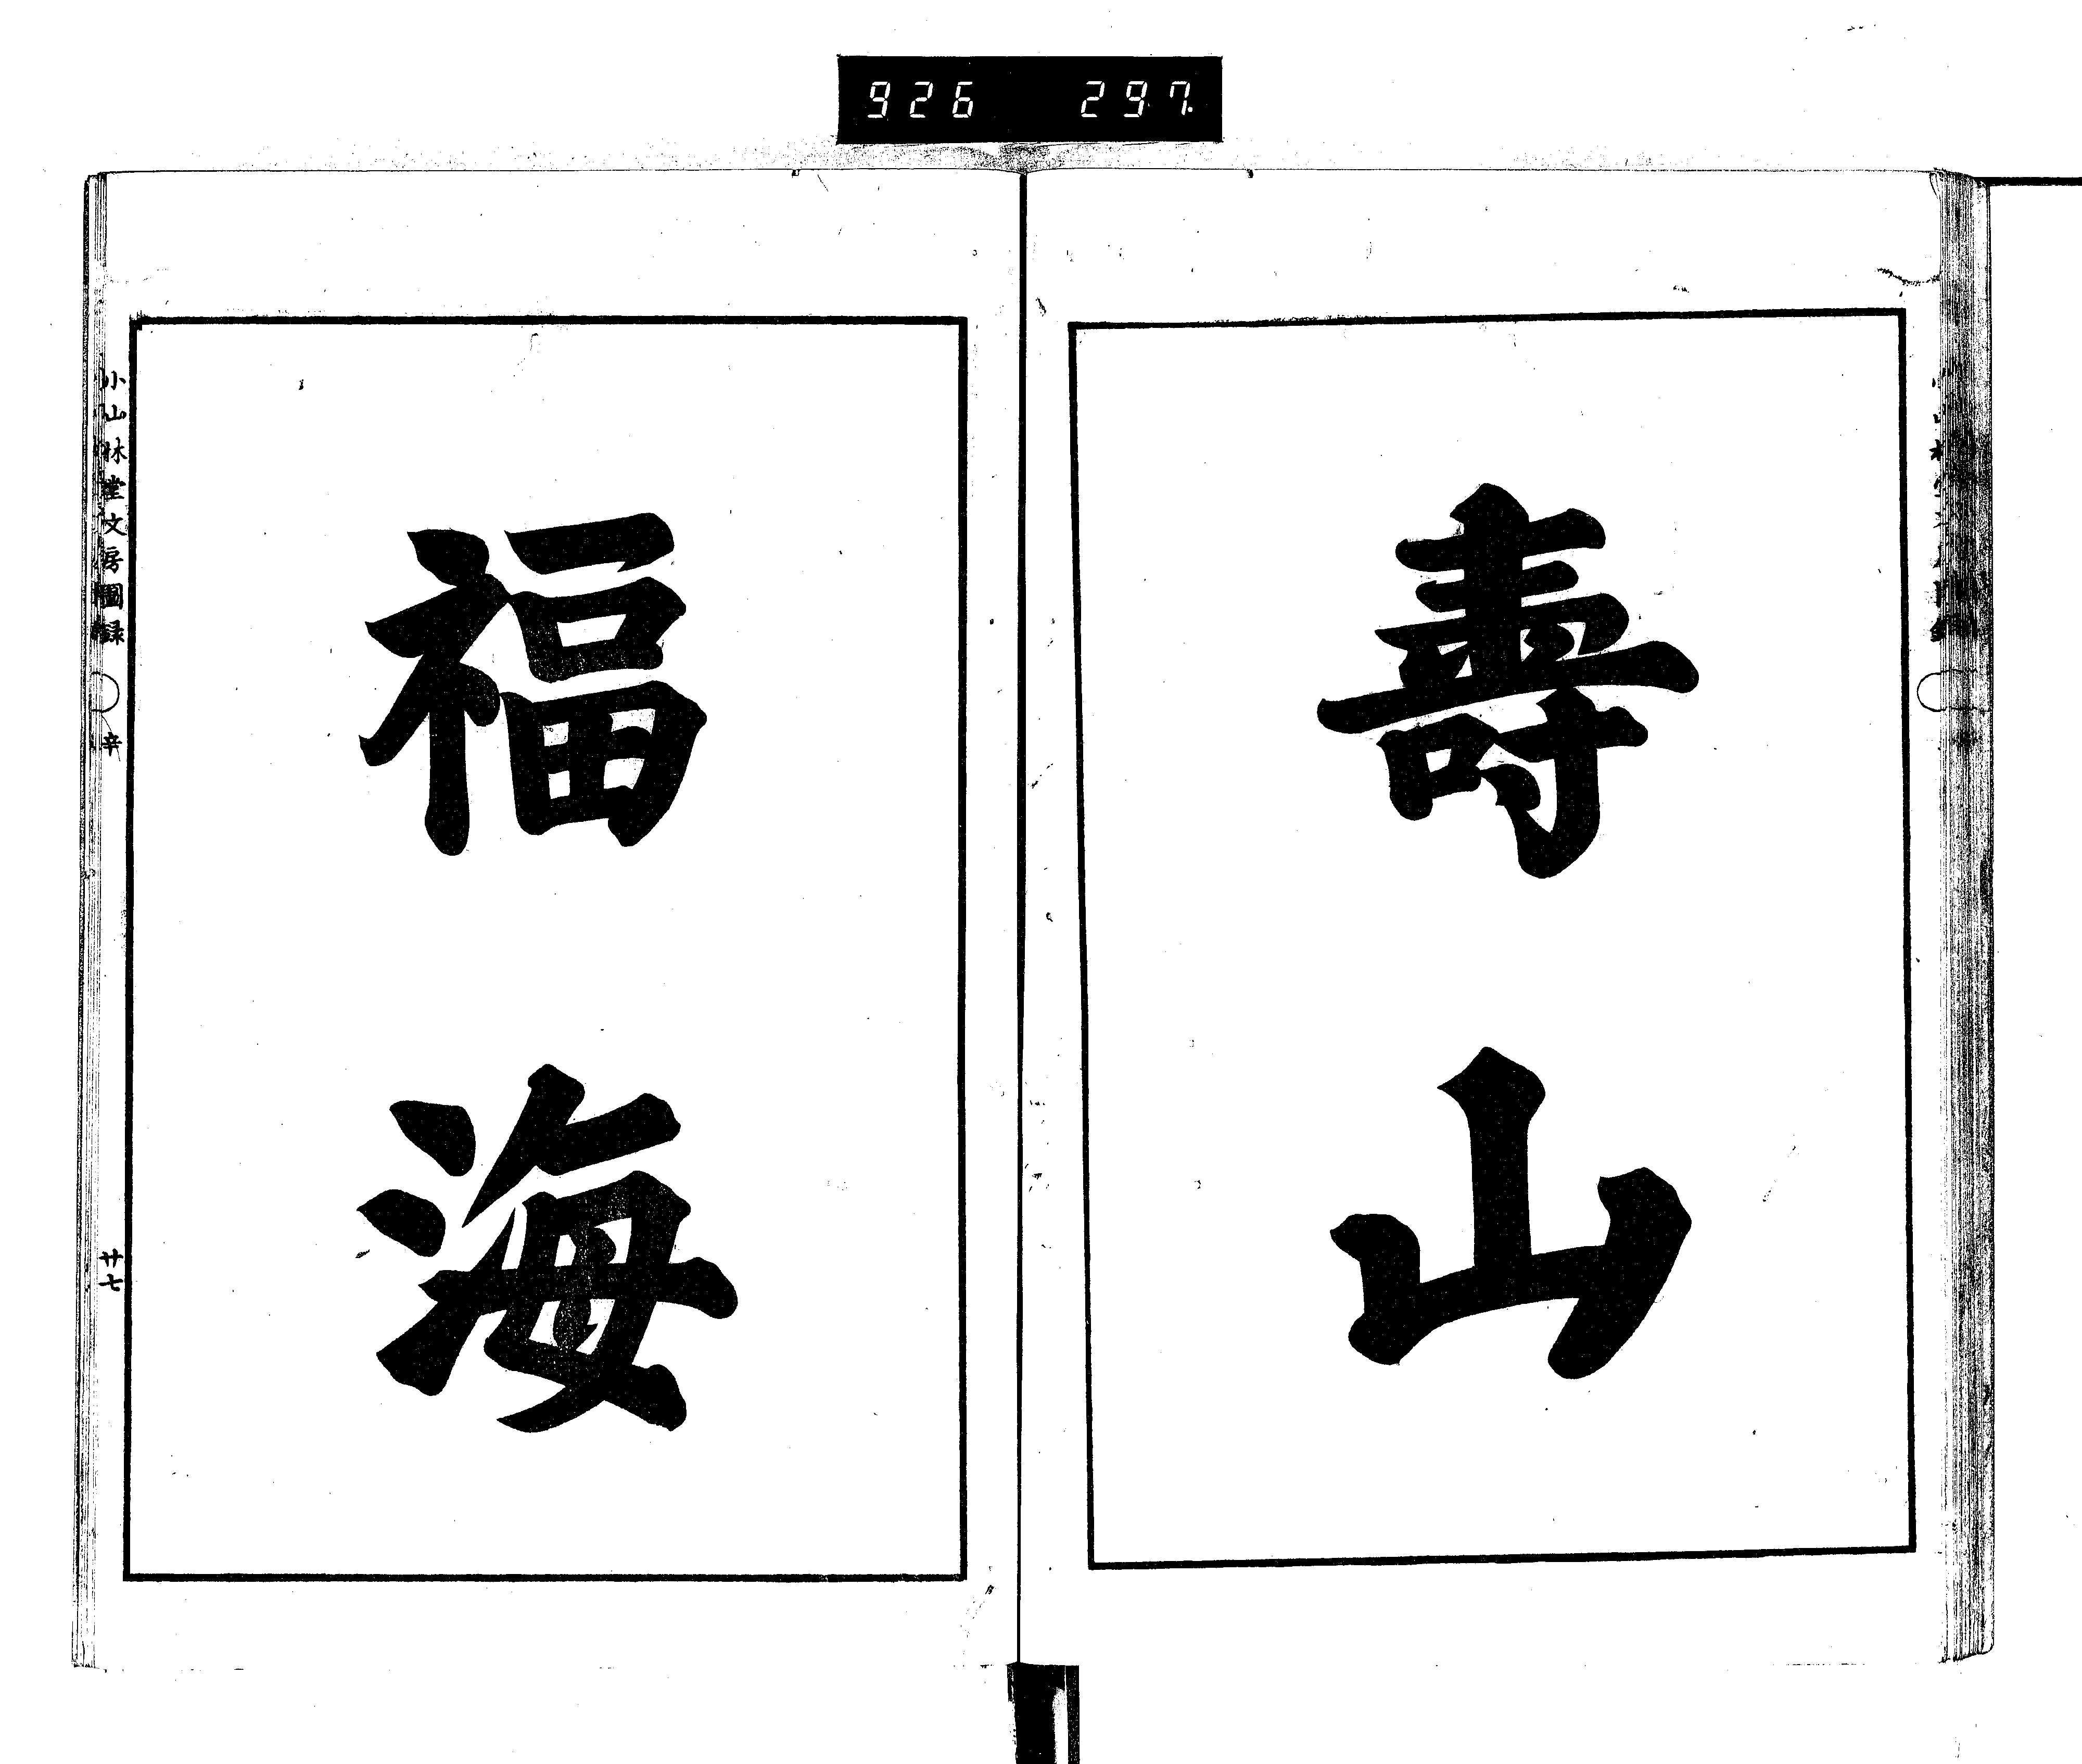 926 297
壽山
福海
小山林堂文房圖録 辛 廿七